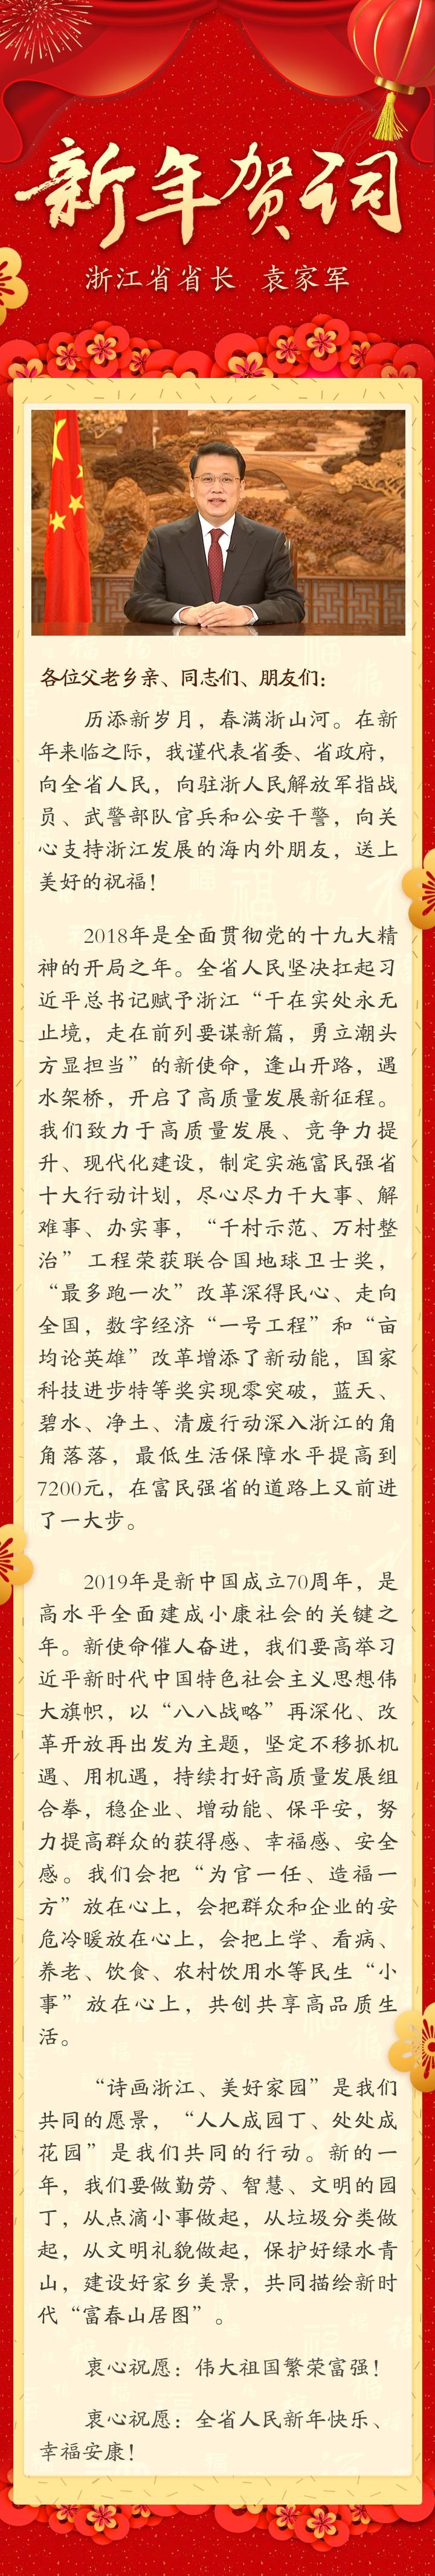 新年贺词
浙江省省长 袁家军
各位父老乡亲、同志们、朋友们：
历添新岁月，春满浙山河。在新
年来临之际，我谨代表省委、省政府，
向全省人民，向驻浙人民解放军指战
员、武警部队官兵和公安干警，向关
心支持浙江发展的海内外朋友，送上
美好的祝福！
2018年是全面贯彻党的十九大精
神的开局之年。全省人民坚决扛起习
近平总书记赋予浙江“干在实处永无
止境，走在前列要谋新篇，勇立潮头
方显担当”的新使命，逢山开路，遇
水架桥，开启了高质量发展新征程。
我们致力于高质量发展、竞争力提
升、现代化建设，制定实施富民强省
十大行动计划，尽心尽力干大事、解
难事、办实事，“千村示范、万村整
治”工程荣获联合国地球卫士奖，
“最多跑一次”改革深得民心、走向
全国，数字经济“一号工程”和“亩
均论英雄”改革增添了新动能，国家
科技进步特等奖实现零突破，蓝天、
碧水、净土、清废行动深入浙江的角
角落落，最低生活保障水平提高到
7200元，在富民强省的道路上又前进
了一大步。
2019年是新中国成立70周年，是
高水平全面建成小康社会的关键之
年。新使命催人奋进，我们要高举习
近平新时代中国特色社会主义思想伟
大旗帜，以“八八战略”再深化、改
革开放再出发为主题，坚定不移抓机
遇、用机遇，持续打好高质量发展组
合拳，稳企业、增动能、保平安，努
力提高群众的获得感、幸福感、安全
感。我们会把“为官一任、造福一
方”放在心上，会把群众和企业的安
危冷暖放在心上，会把上学、看病、
养老、饮食、农村饮用水等民生“小
事”放在心上，共创共享高品质生
活。
“诗画浙江、美好家园”是我们
共同的愿景，“人人成园丁、处处成
花园”是我们共同的行动。新的一
年，我们要做勤劳、智慧、文明的园
丁，从点滴小事做起，从垃圾分类做
起，从文明礼貌做起，保护好绿水青
山，建设好家乡美景，共同描绘新时
代“富春山居图”。
衷心祝愿：伟大祖国繁荣富强！
衷心祝愿：全省人民新年快乐、
幸福安康！